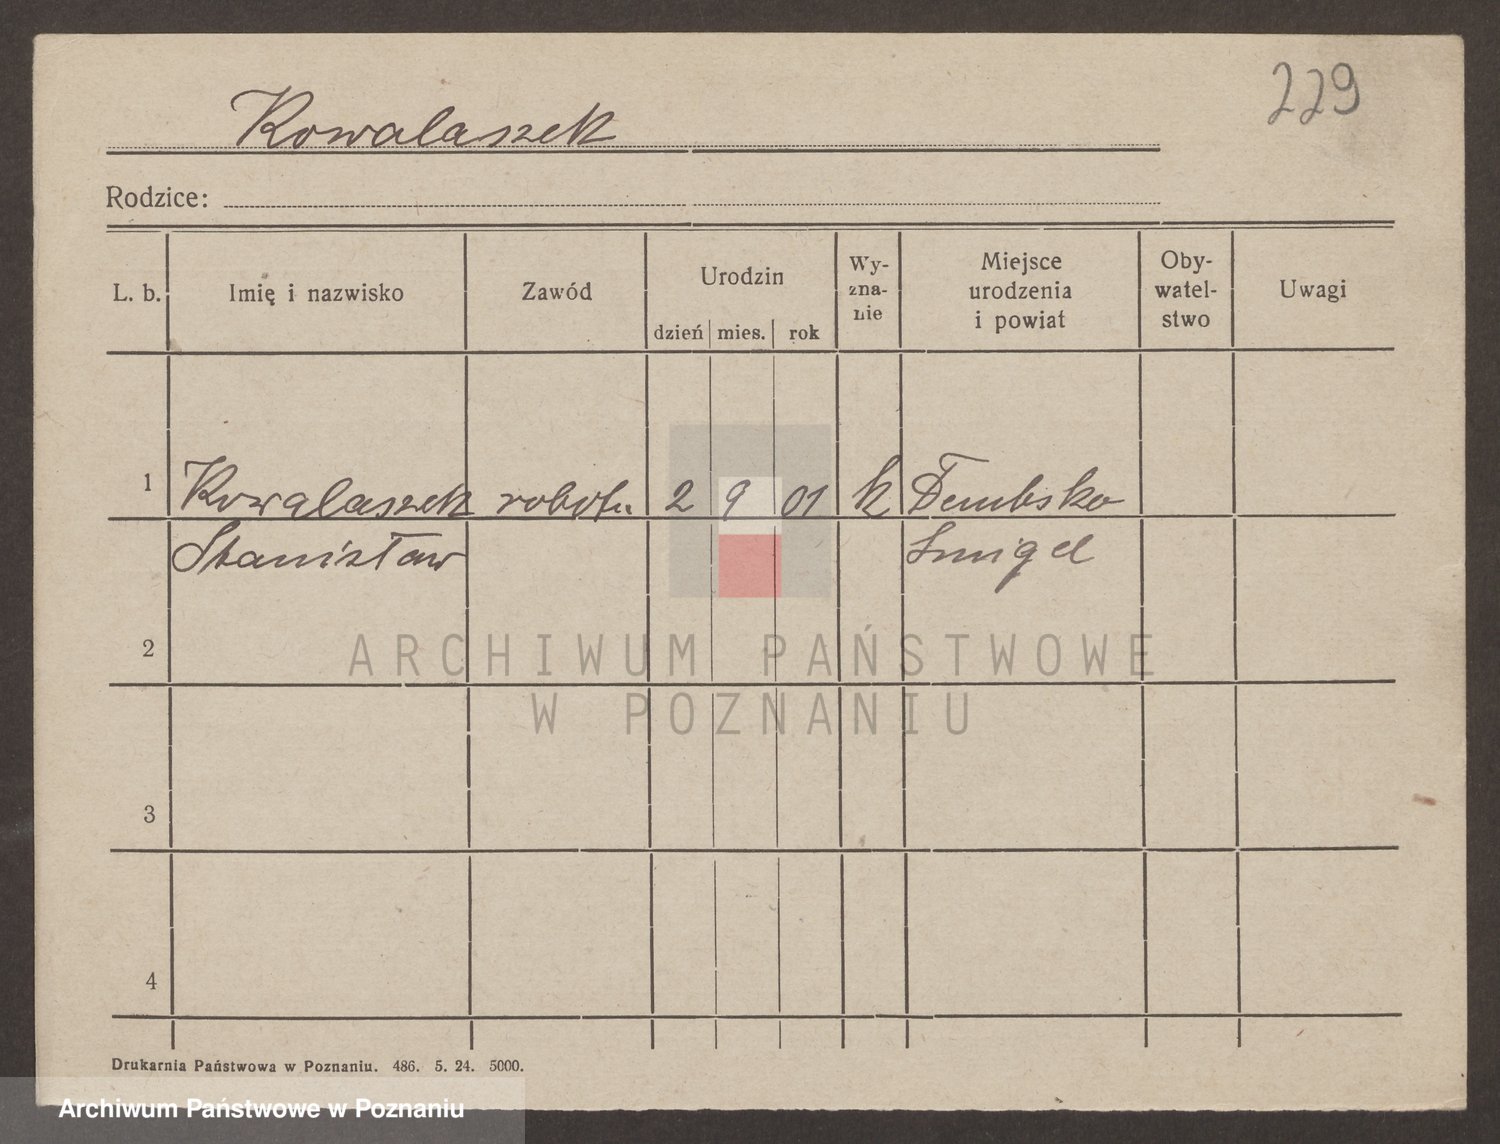 229
Kowalaszek
Rodzice:
L. b.
Imię i nazwisko
Zawód
Urodzin
dzień mies. rok
Wy-
zna-
nie
Miejsce
urodzenia
i powiat
Oby-
watel-
stwo
Uwagi
1 Kowalaszek robotn. 2 9 01 k Dembsko
Stanisław Śmigel
2
3
4
ARCHIWUM PAŃSTWOWE
W POZNANIU
Drukarnia Państwowa w Poznaniu. 486. 5. 24. 5000.
Archiwum Państwowe w Poznaniu